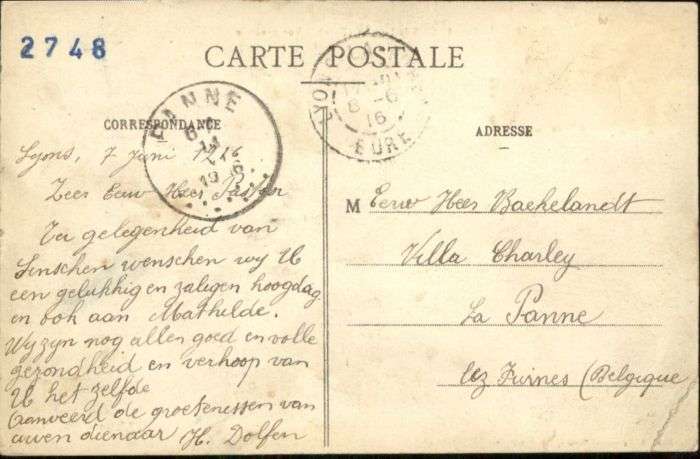 2748
CARTE POSTALE
CORRESPONDANCE
Lyons, 7 Juni 1916
Zeer Eerw Heer Pastor
Ter gelegenheid van
Sinschen wenschen wy U
een gelukkig en zaligen hoogdag
en ook aan Mathilde.
Wy zyn nog allen goed en volle
gezondheid en verhoop van
U het zelfde
Aanveerd de groetenessen van
uwen dienaar H. Dolfen
PANNE
LYON
8 -6
16
EURE
ADRESSE
M Eerw Heer Baekelandt
Villa Charley
La Panne
lez Furnes (Belgique